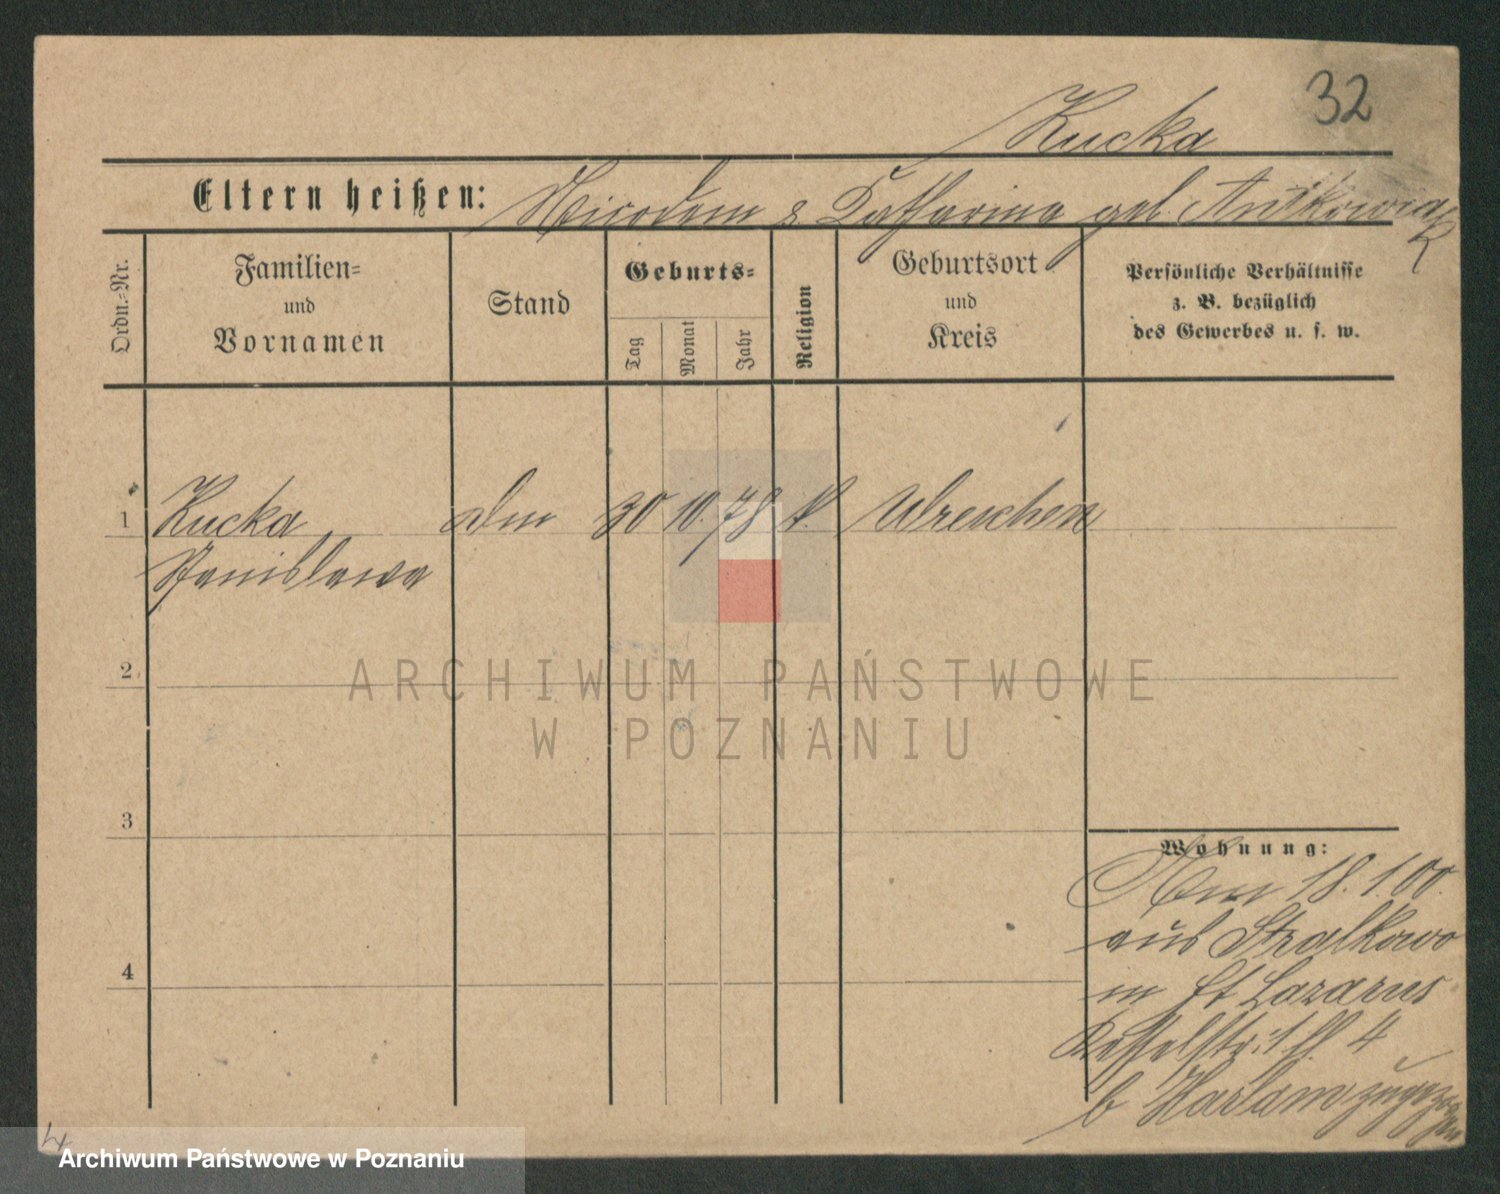 32
Kucka
Eltern heißen: Nicodem & Catharina geb. Antkowiak
Ordn.-Nr.
Familien-
und
Vornamen
Stand
Geburts-
Tag
Monat
Jahr
Religion
Geburtsort
und
Kreis
Persönliche Verhältnisse
z. B. bezüglich
des Gewerbes u. s. w.
1 Kucka 30 10. 78 k. Wreschen
Stanislawa
2
3
4
Wohnung:
18. 1. 00.
aus Stralkowo
in St Lazarus
4
b Harlam zugezogen
ARCHIWUM PAŃSTWOWE
W POZNANIU
Archiwum Państwowe w Poznaniu